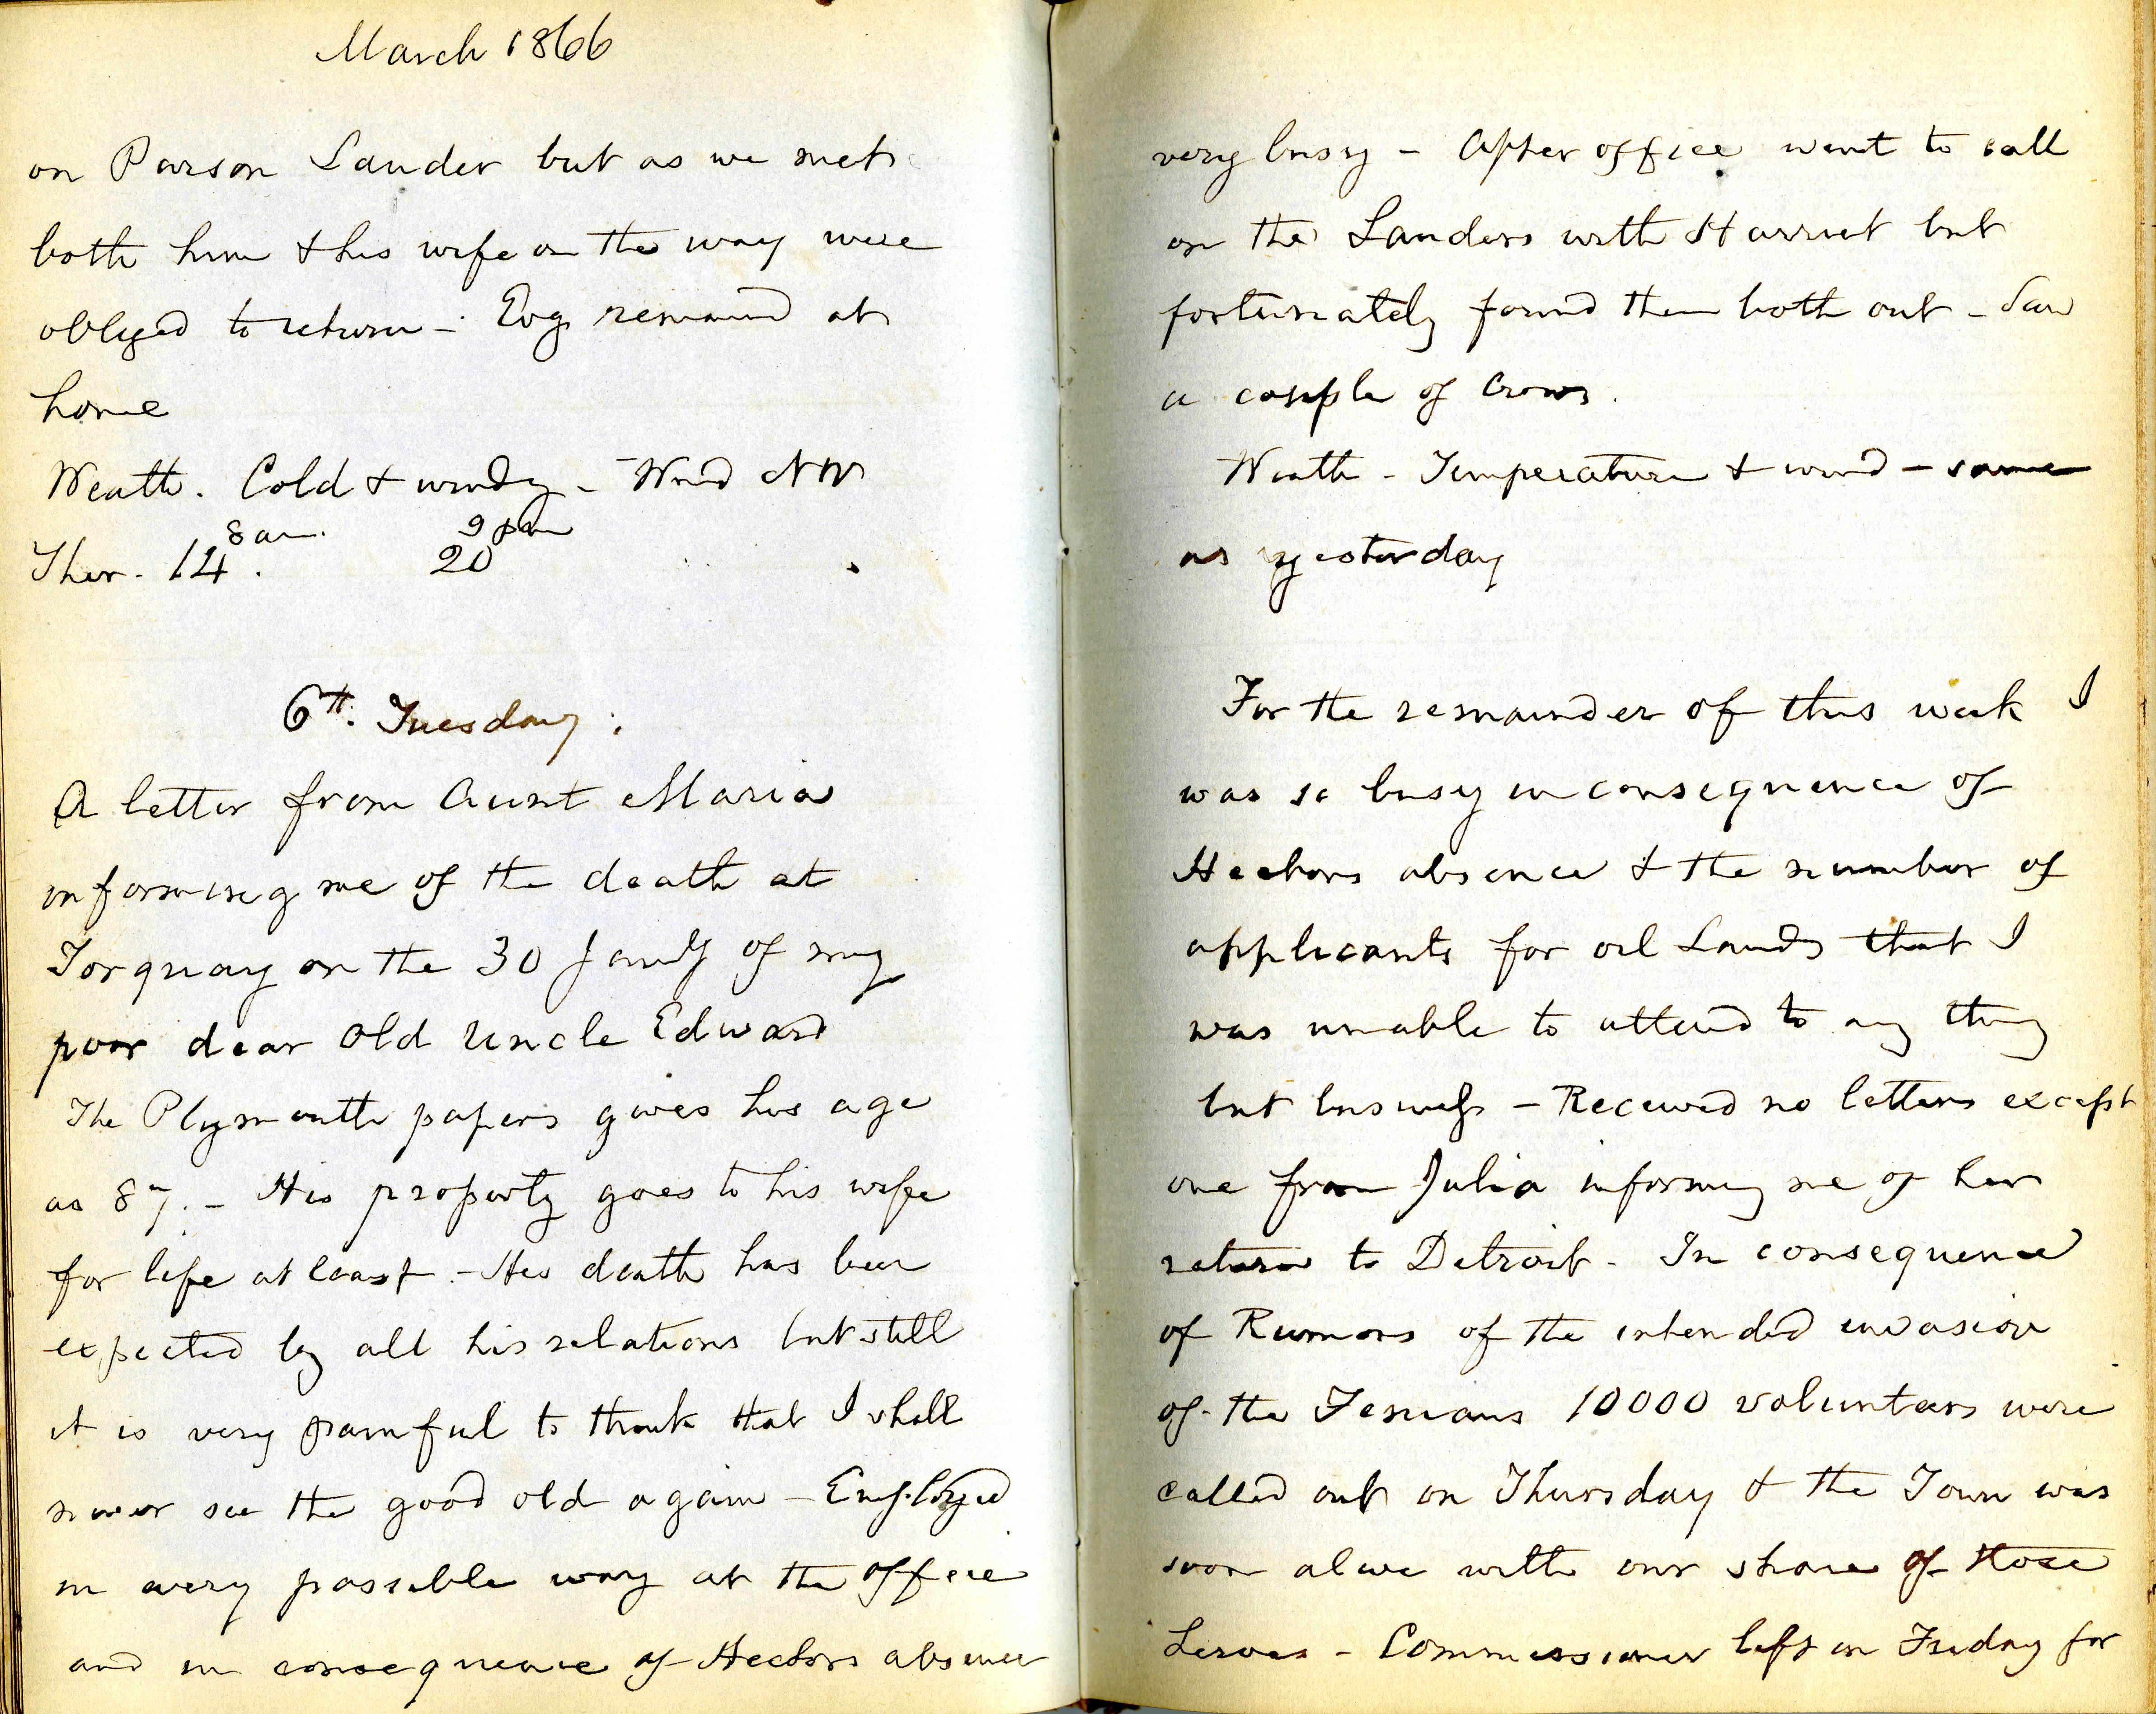 March 1866
on Parson Lander but as we met
both him & his wife on the way were
obliged to return - Evg remained at
home
Weath. Cold & windy - Wind NW
8 am. 9 pm
Ther. 14. 20
6th. Tuesday.
A letter from Aunt Maria
informing me of the death at
Torquay on the 30 Jany of my
poor dear old Uncle Edward
The Plymouth papers gives his age
as 87. - His property goes to his wife
for life at least. - His death has been
expected by all his relations but still
it is very painful to think that I shall
never see the good old again - Employed
in every possible way at the office
and in consequence of Hectors absence
very busy - After office went to call
on the Landers with Harriet but
fortunately found them both out - Saw
a couple of Crows.
Weath - Temperature & wind - same
as yesterday
For the remainder of this week I
was so busy in consequence of
Hectors absence & the number of
applicants for oil Lands that I
was unable to attend to any thing
but business - Received no letters except
one from Julia informing me of her
return to Detroit - In consequence
of Rumors of the intended invasion
of the Fenians 10000 volunteers were
called out on Thursday & the Town was
soon alive with our share of those
- Commissioner left on Friday for